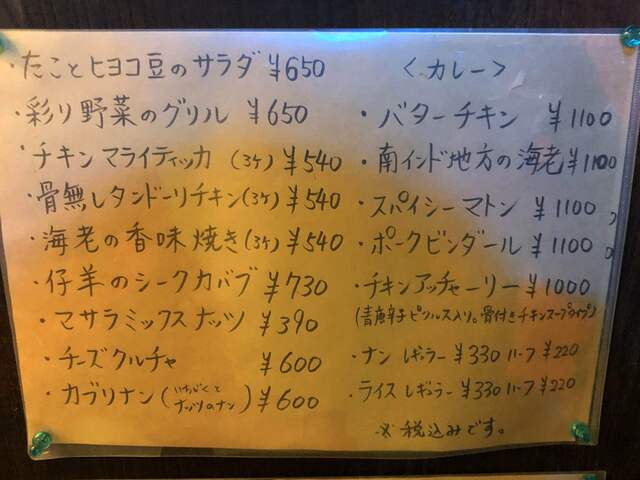 ・たことヒヨコ豆のサラダ ¥650
・彩り野菜のグリル ¥650
・チキンマライティッカ (3ケ) ¥540
・骨無しタンドーリチキン(3ケ) ¥540
・海老の香味焼き(3ケ) ¥540
・仔羊のシークカバブ ¥730
・マサラミックスナッツ ¥390
・チーズクルチャ ¥600
・カブリナン(いちじくとナッツのナン) ¥600
〈カレー〉
・バターチキン ¥1100
・南インド地方の海老 ¥1100
・スパイシーマトン ¥1100
・ポークビンダール ¥1100
・チキンアッチャーリー ¥1000
(青唐辛子ピクルス入り。骨付きチキンスープタイプ)
・ナン レギュラー ¥330 ハーフ ¥220
・ライス レギュラー ¥330 ハーフ ¥220
※税込みです。